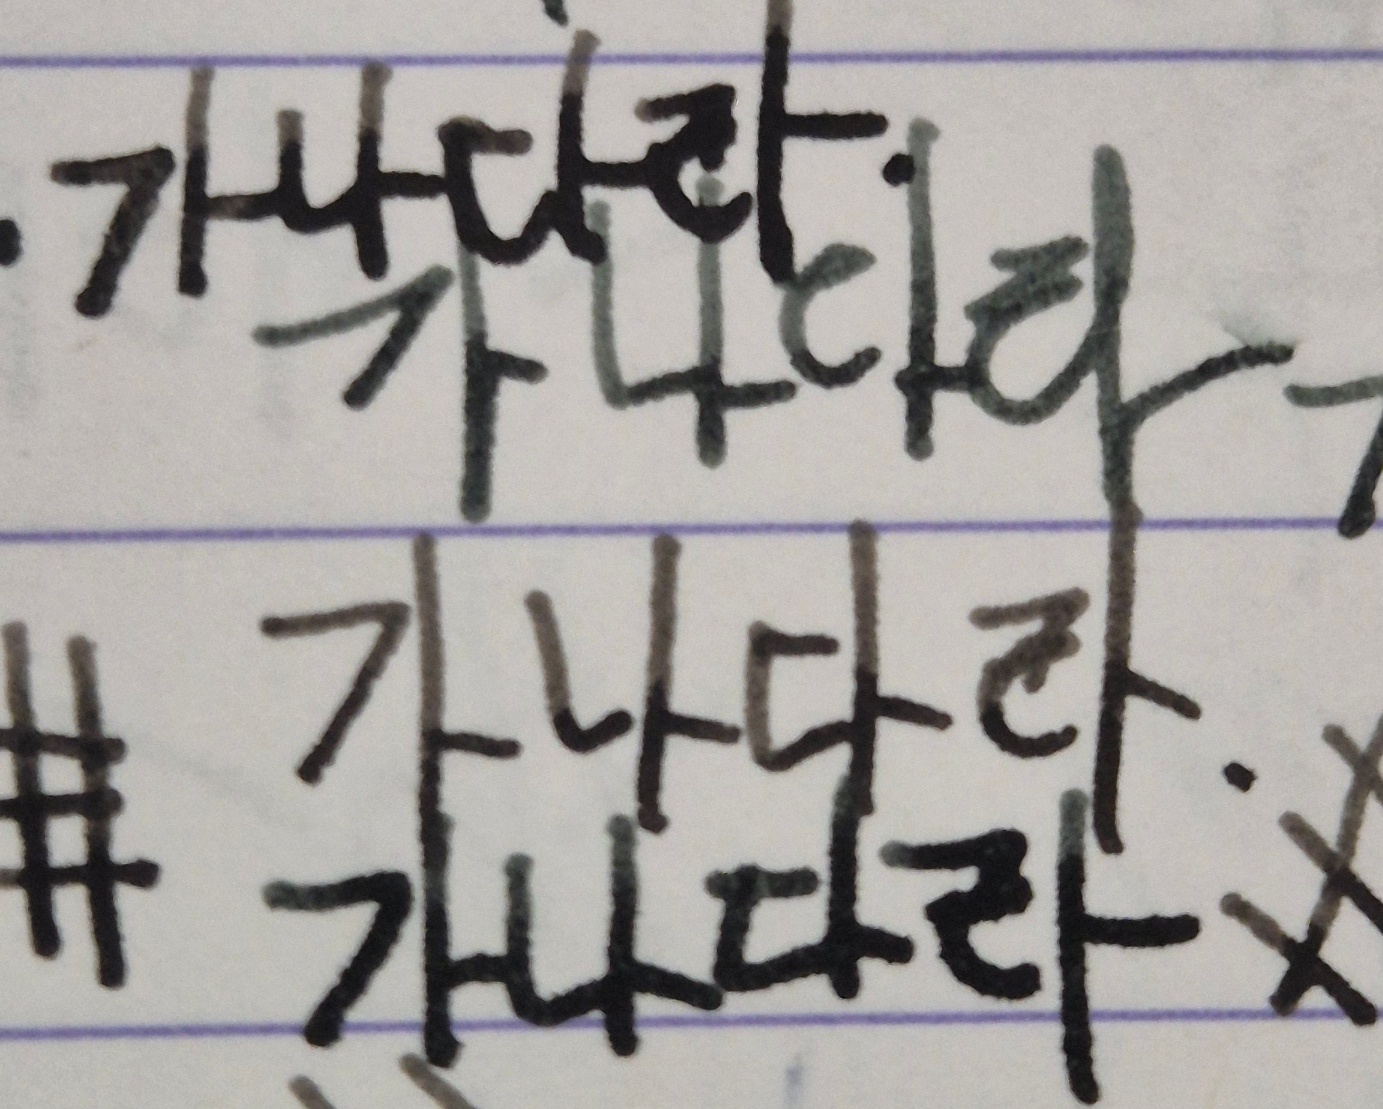 가나다라.
가나다라
가나다라.
가나다라